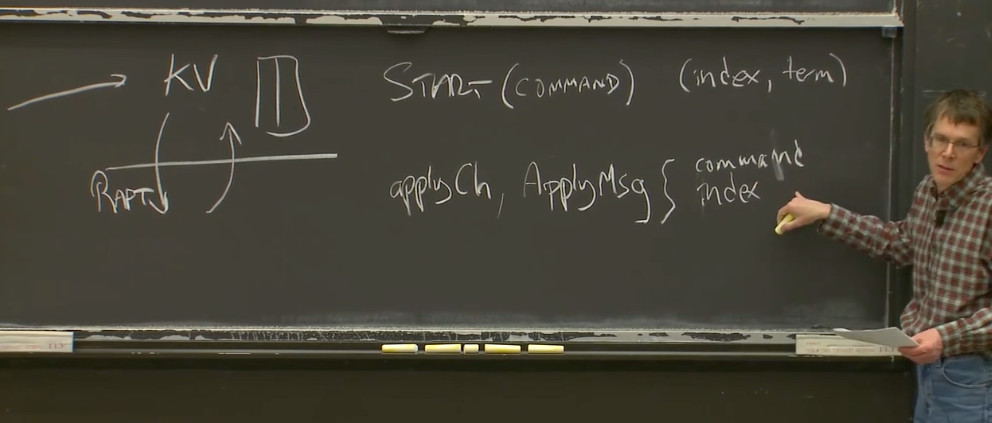 KV
START (COMMAND) (index, term)
RAFT
applyCh, ApplyMsg { command
index